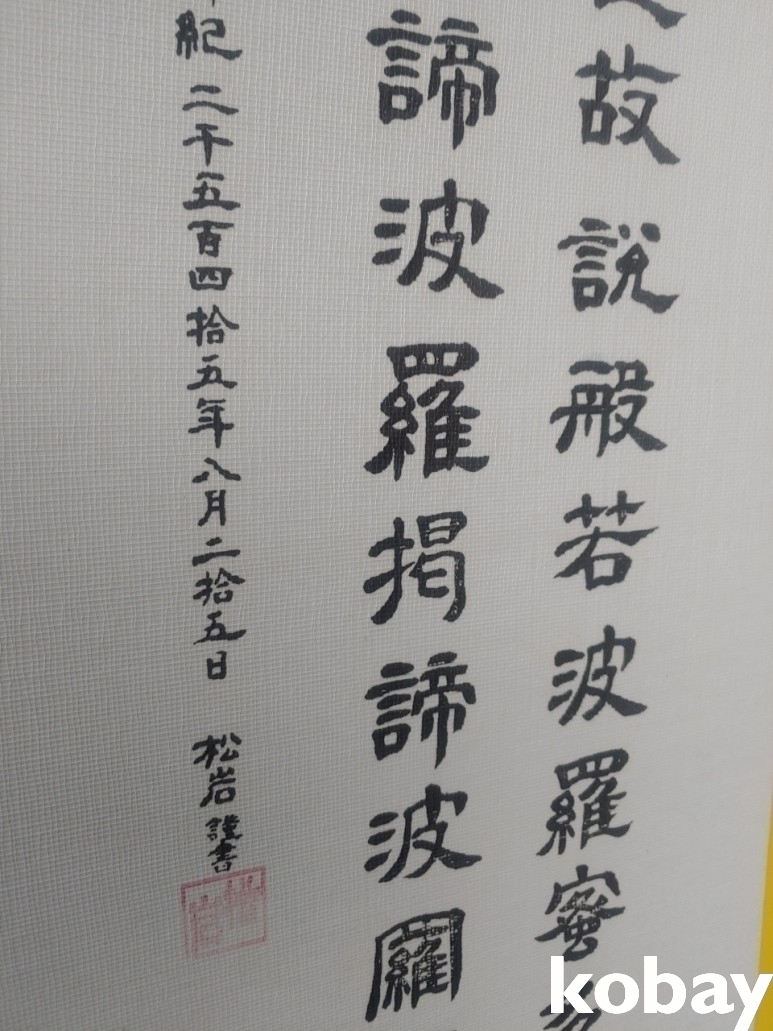 故說般若波羅蜜多
諦波羅揭諦波羅
紀二千五百四拾五年八月二拾五日 松岩 謹書
kobay